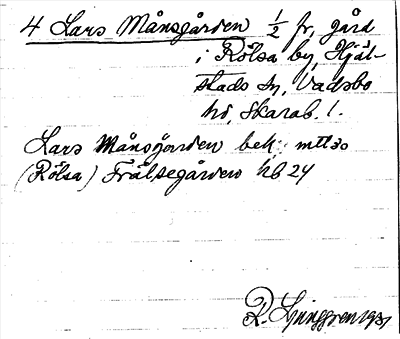 4 Lars Månsgården 1/2 fr. gård
i Rölsa by, Hjäl-
stads sn, Vadsbo
hd, Skarab. l.
Lars Månsgården bek:
(Rölsa) Frälsegården hb 24
R. Ljunggren 1931